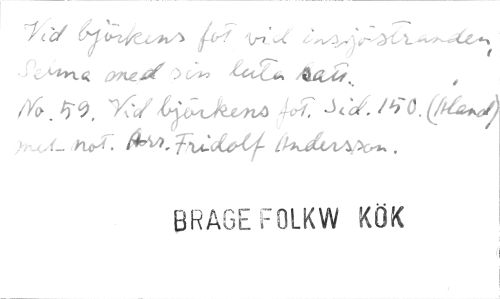 Vid björkens fot vid insjöstranden,
Selma med sin luta satt.
No. 59. Vid björkens fot. Sid. 150. (Åland)
mel. not. Arr. Fridolf Andersson.
BRAGE FOLKW KÖK